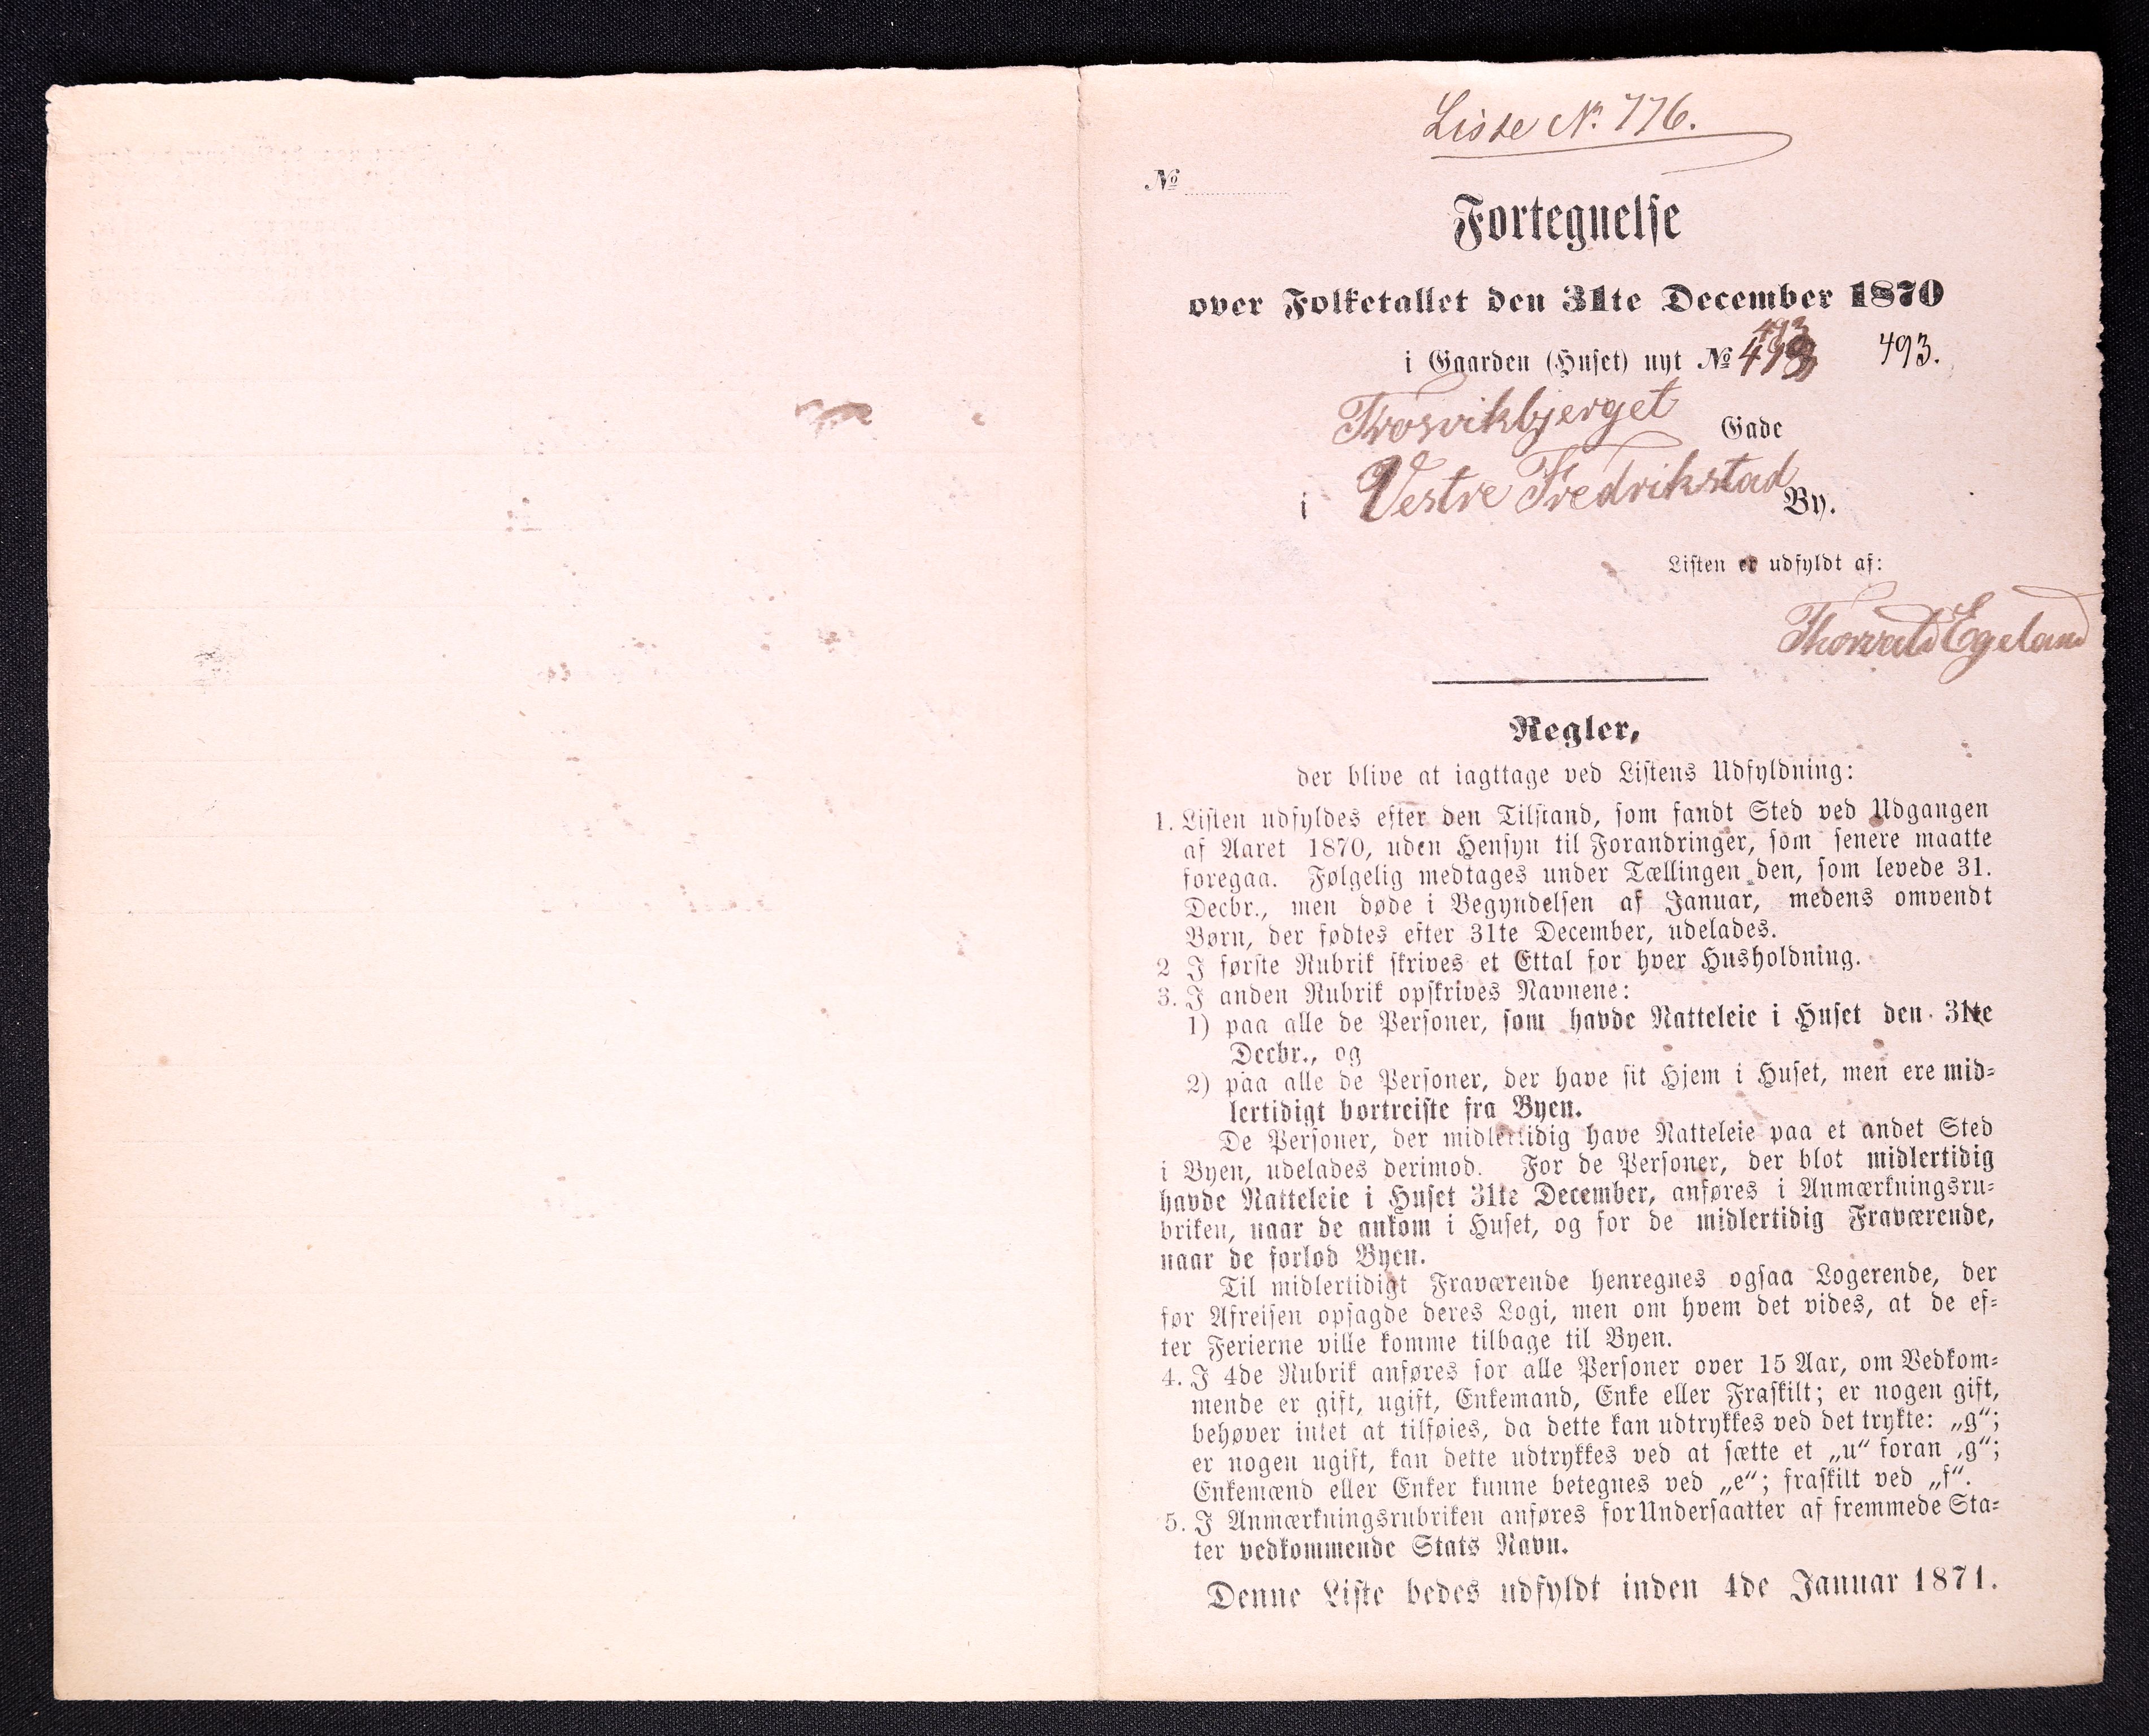 Liste Nr. 776.
№
Fortegnelse
over Folketallet den 31te December 1870
i Gaarden (Huset) nyt № 493 493.
Trosvikbjerget Gade
i Vestre Fredrikstad By.
Listen er udfyldt af:
Thorvald Egeland
Regler,
der blive at iagttage ved Listens Udfyldning:
1. Listen udfyldes efter den Tilstand, som fandt Sted ved Udgangen
af Aaret 1870, uden Hensyn til Forandringer, som senere maatte
foregaa. Følgelig medtages under Tællingen den, som levede 31.
Decbr., men døde i Begyndelsen af Januar, medens omvendt
Børn, der fødtes efter 31te December, udelades.
2 I første Rubrik skrives et Ettal for hver Husholdning.
3. I anden Rubrik opskrives Navnene:
1) paa alle de Personer, som havde Natteleie i Huset den 31te
Decbr., og
2) paa alle de Personer, der have sit Hjem i Huset, men ere mid-
lertidigt bortreiste fra Byen.
De Personer, der midlertidig have Natteleie paa et andet Sted
i Byen, udelades derimod. For de Personer, der blot midlertidig
havde Natteleie i Huset 31te December, anføres i Anmærkningsru-
briken, naar de ankom i Huset, og for de midlertidig Fraværende,
naar de forlod Byen.
Til midlertidigt Fraværende henregnes ogsaa Logerende, der
før Afreisen opsagde deres Logi, men om hvem det vides, at de ef-
ter Ferierne ville komme tilbage til Byen.
4. I 4de Rubrik anføres for alle Personer over 15 Aar, om Vedkom-
mende er gift, ugift, Enkemand, Enke eller Fraskilt; er nogen gift,
behøver intet at tilføies, da dette kan udtrykkes ved det trykte: „g“;
er nogen ugift, kan dette udtrykkes ved at sætte et „u“ foran „g“;
Enkemænd eller Enker kunne betegnes ved „e“; fraskilt ved „f“.
5. I Anmærkningsrubriken anføres for Undersaatter af fremmede Sta-
ter vedkommende Stats Navn.
Denne Liste bedes udfyldt inden 4de Januar 1871.